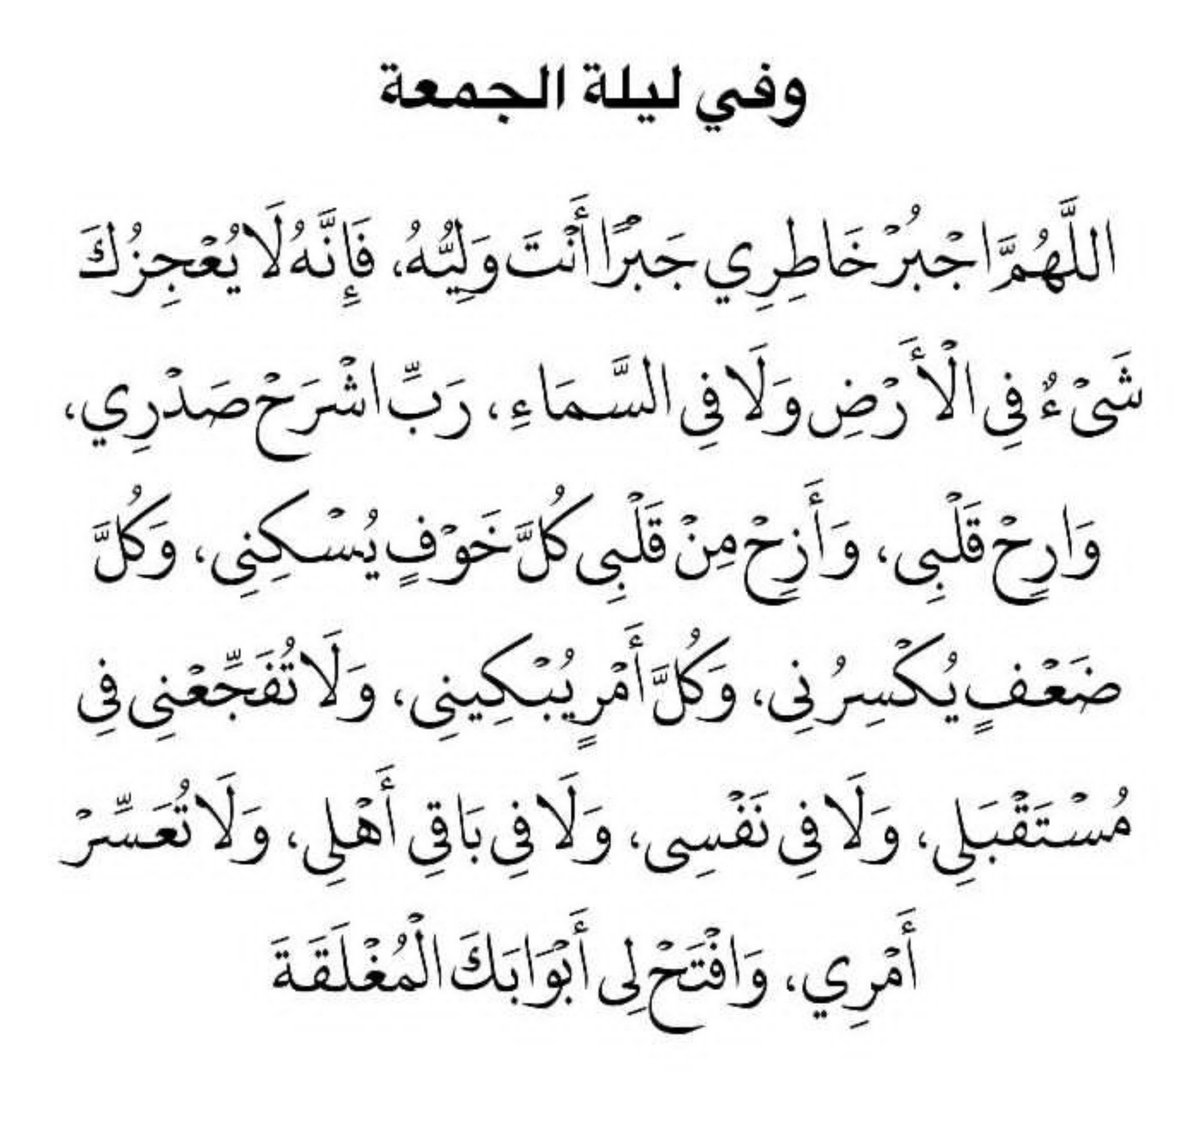 وفي ليلة الجمعة
اللَّهُمَّ اجْبُرْ خَاطِرِي جَبْرًا أَنْتَ وَلِيُّهُ، فَإِنَّهُ لَا يُعْجِزُكَ
شَيْءٌ فِي الْأَرْضِ وَلَا فِي السَّمَاءِ، رَبِّ اشْرَحْ صَدْرِي،
وَارِحْ قَلْبِي، وَأَزِحْ مِنْ قَلْبِي كُلَّ خَوْفٍ يُسْكِنِي، وَكُلَّ
ضَعْفٍ يُكْسِرُنِي، وَكُلَّ أَمْرٍ يُبْكِينِي، وَلَا تُفَجِّعْنِي فِي
مُسْتَقْبَلِي، وَلَا فِي نَفْسِي، وَلَا فِي بَاقِي أَهْلِي، وَلَا تُعَسِّرْ
أَمْرِي، وَافْتَحْ لِي أَبْوَابَكَ الْمُغْلَقَةَ